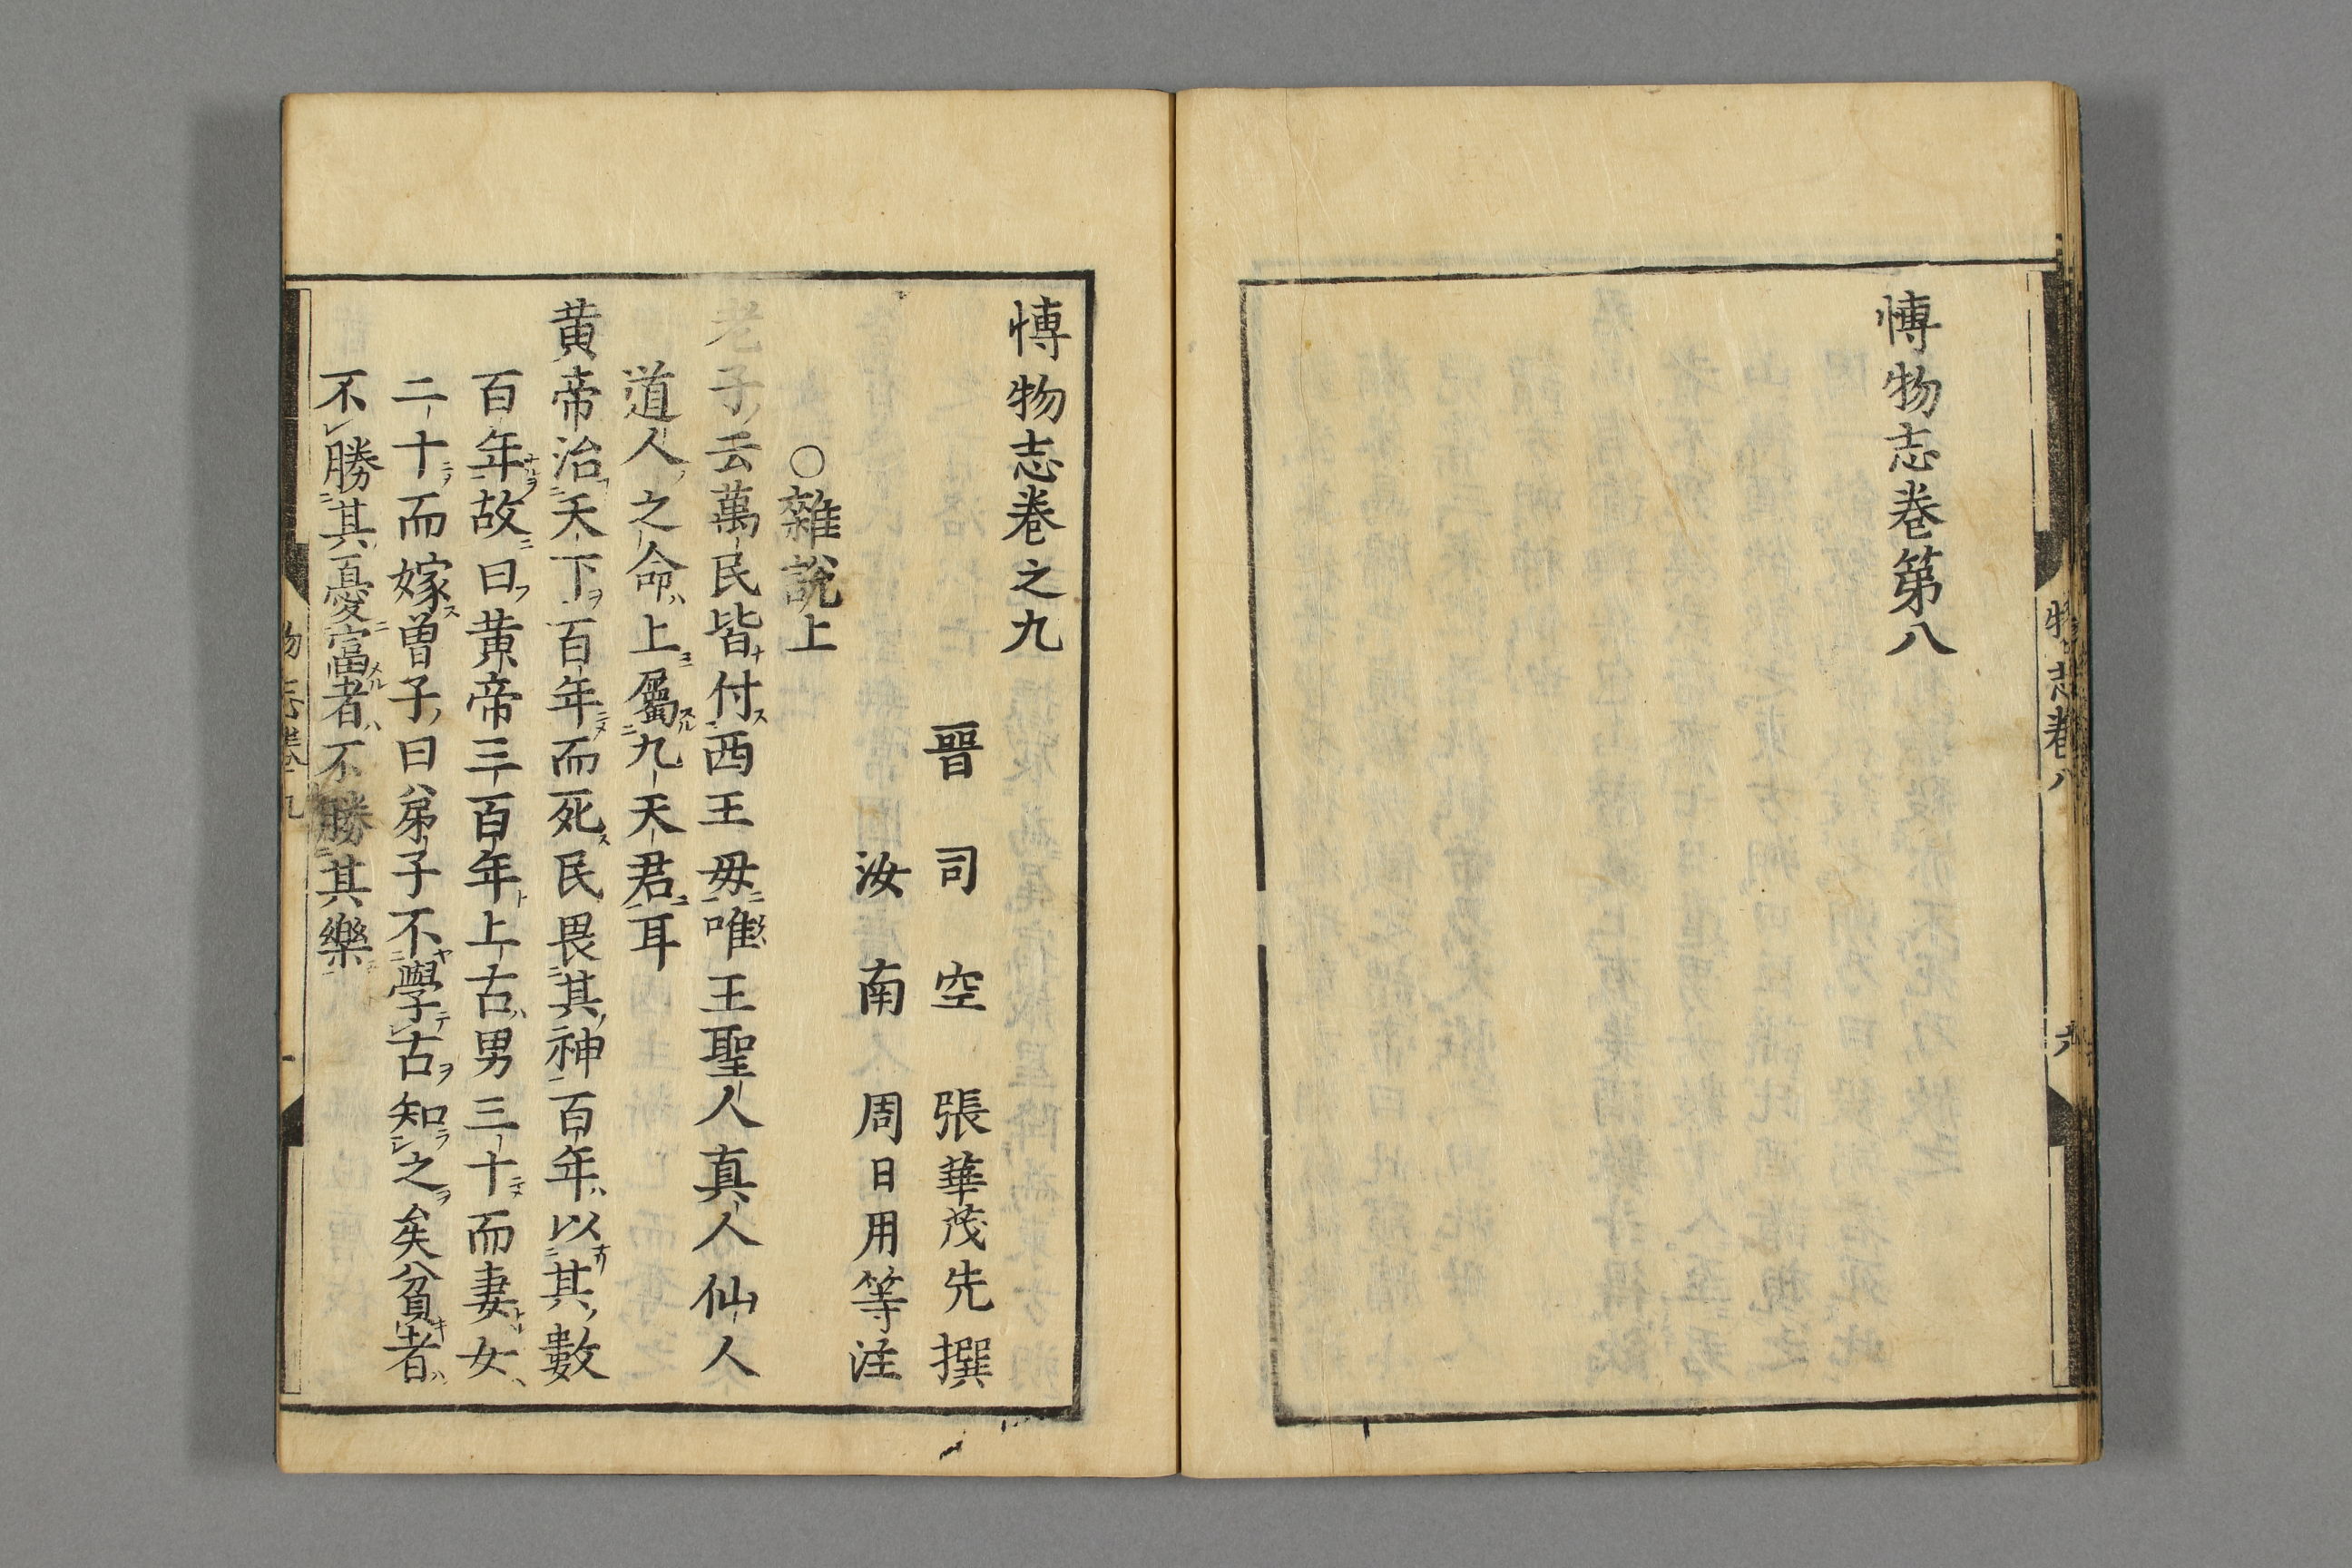 愽物志卷第八
物志卷八
愽物志卷之九
晉司空張華茂先撰
汝南周日用等注
○雜說上
老子云萬民皆付西王毋唯王聖人真人仙人
道人之命上屬九天君耳
黄帝治天下百年而死民畏其神百年以其數
百年故曰黄帝三百年上古男三十而妻女
二十而嫁曽子曰弟子不學古知之矣貧者
不勝其憂富者不勝其樂
物志卷九